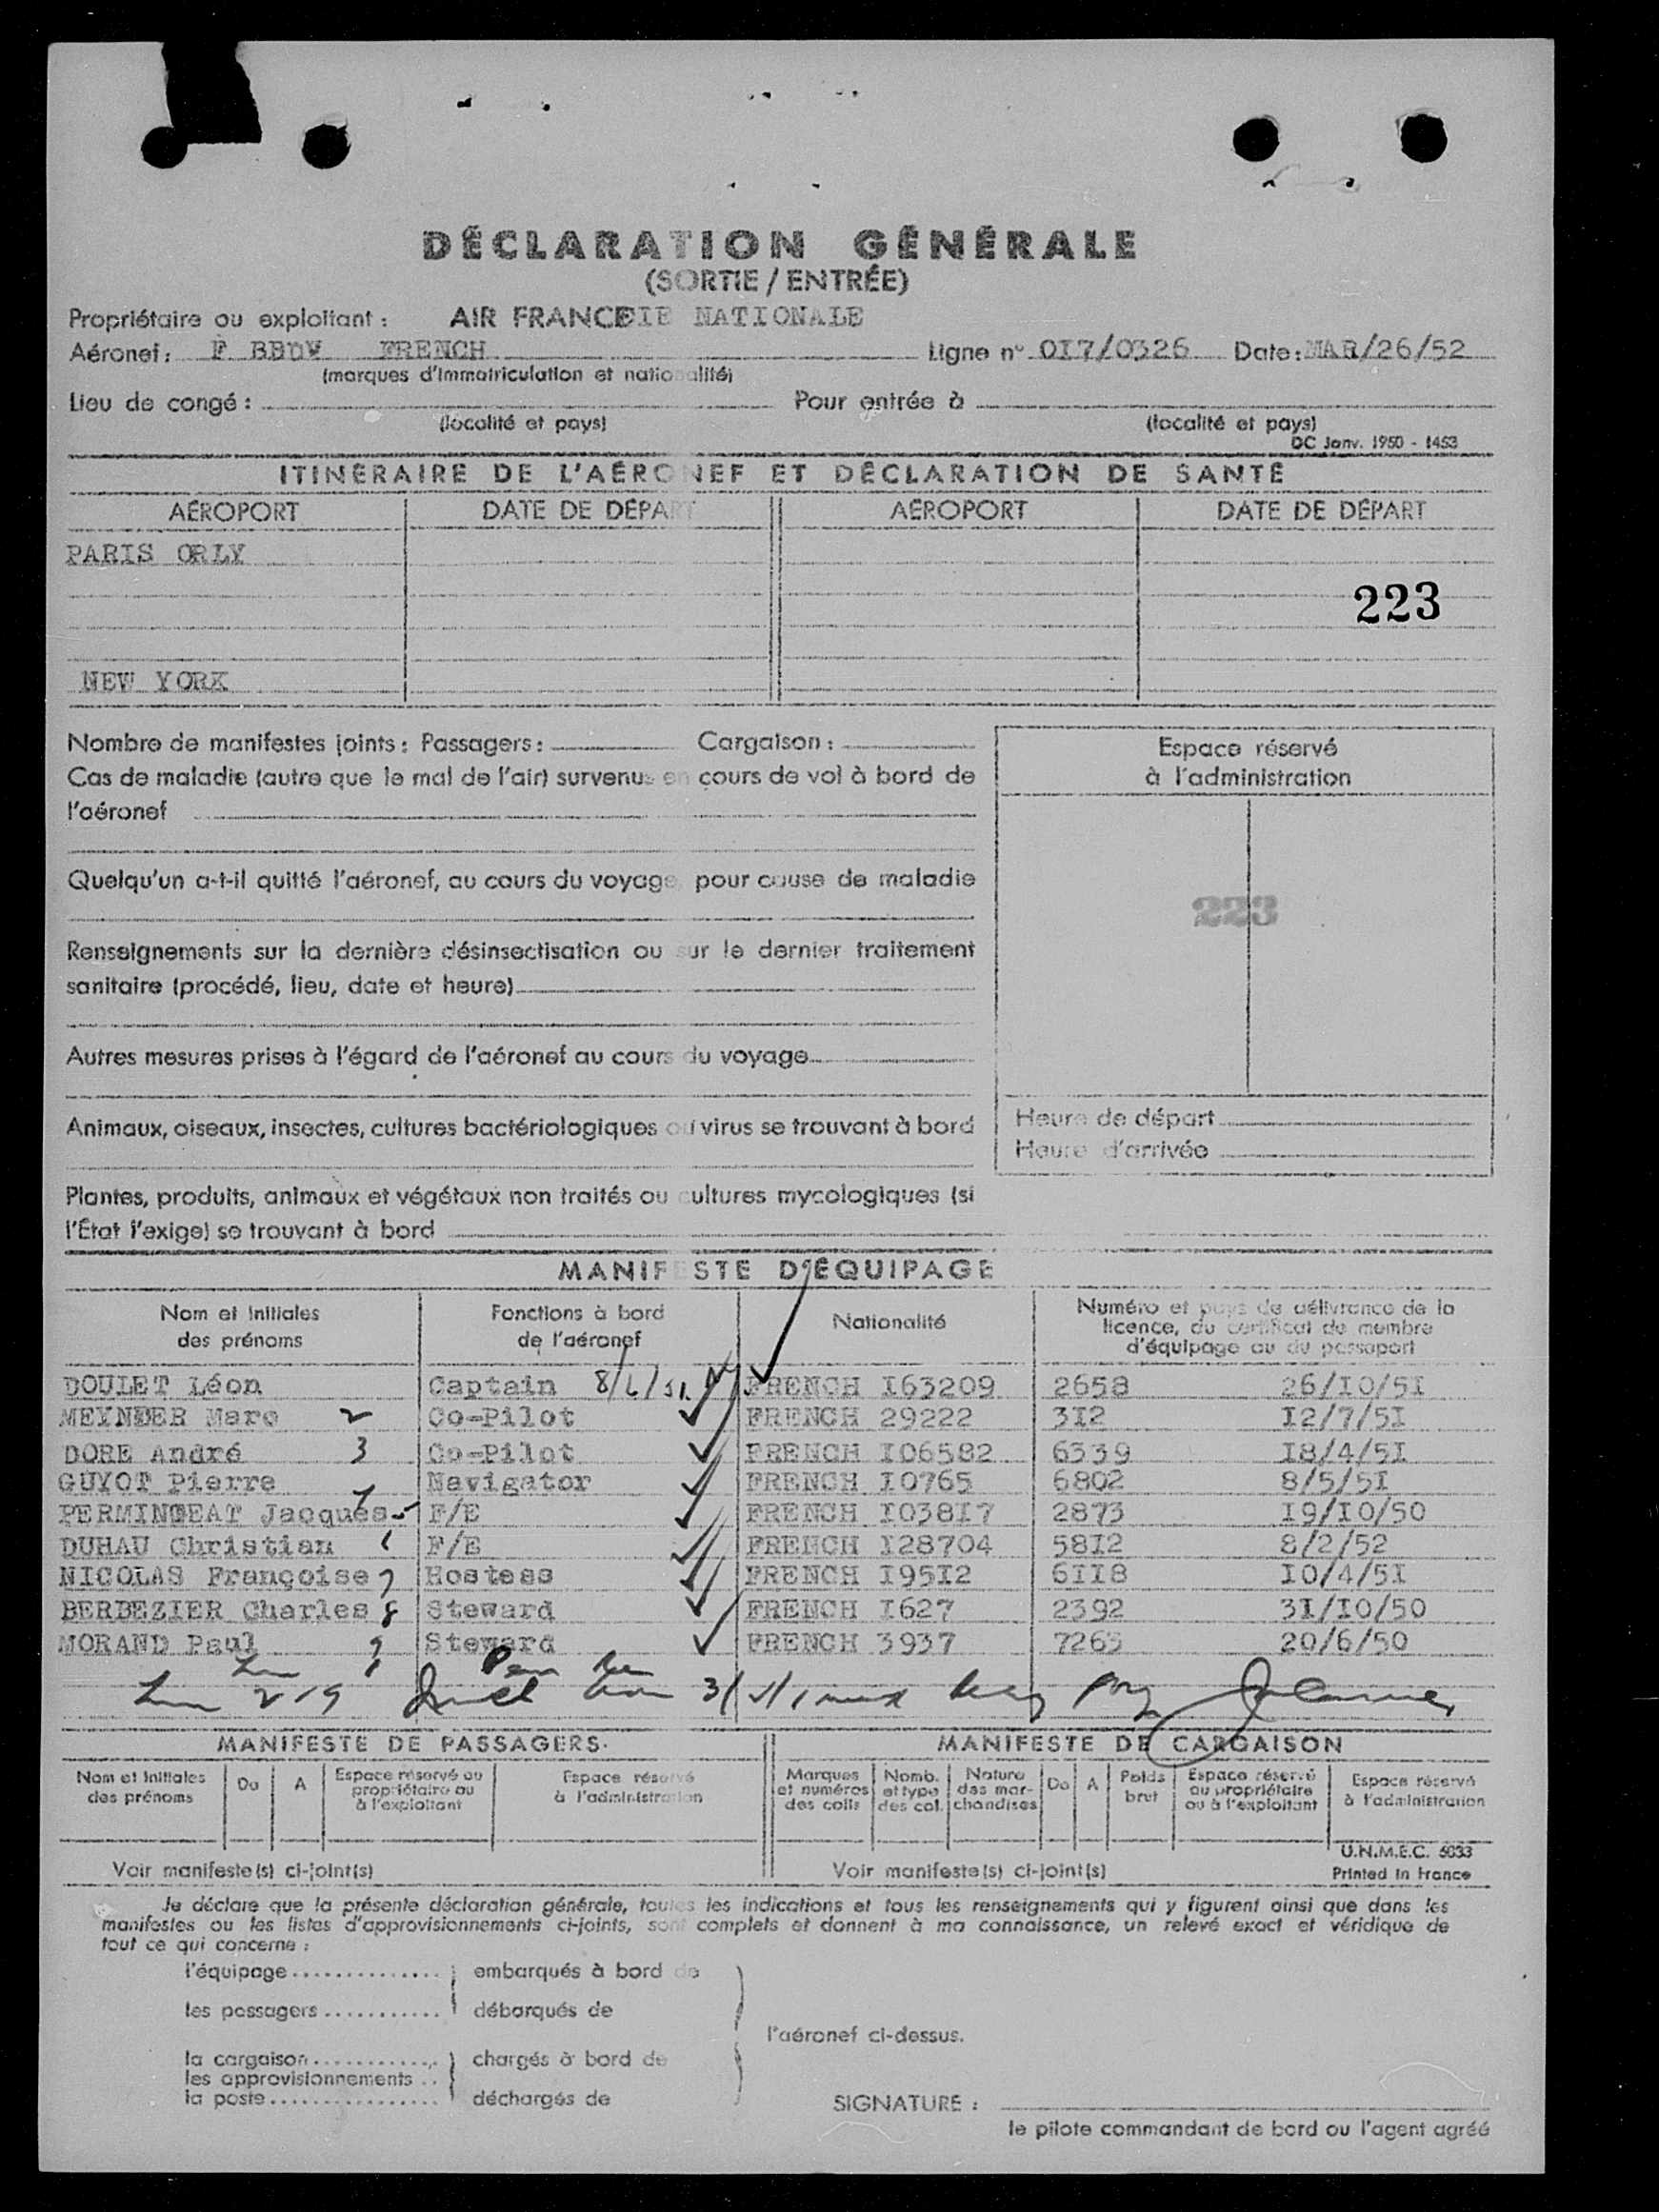 DÉCLARATION GÉNÉRALE
(SORTIE / ENTRÉE)
Propriétaire ou exploitant : AIR FRANCE NATIONALE
Aéronef : F BBDV FRENCH Ligne n° OI7/0326 Date: MAR/26/52
(marques d'immatriculation et nationalité)
Lieu de congé : Pour entrée à
(localité et pays) (localité et pays)
DC Janv. 1950 - 1453
ITINÉRAIRE DE L'AÉRONEF ET DÉCLARATION DE SANTÉ
AÉROPORT DATE DE DÉPART AÉROPORT DATE DE DÉPART
PARIS ORLY
223
NEW YORK
Nombre de manifestes joints : Passagers : Cargaison :
Espace réservé
à l'administration
Cas de maladie (autre que le mal de l'air) survenus en cours de vol à bord de
l'aéronef
Quelqu'un a-t-il quitté l'aéronef, au cours du voyage pour cause de maladie
223
Renseignements sur la dernière désinsectisation ou sur le dernier traitement
sanitaire (procédé, lieu, date et heure)
Autres mesures prises à l'égard de l'aéronef au cours du voyage
Animaux, oiseaux, insectes, cultures bactériologiques ou virus se trouvant à bord
Heure de départ
Heure d'arrivée
Plantes, produits, animaux et végétaux non traités ou cultures mycologiques (si
l'État l'exige) se trouvant à bord
MANIFESTE D'ÉQUIPAGE
Nom et initiales des prénoms Fonctions à bord de l'aéronef Nationalité Numéro et pays de délivrance de la licence, du certificat de membre d'équipage ou du passeport
DOULET Léon Captain FRENCH I63209 2658 26/IO/5I
MEYNDER Marc 2 Co-Pilot FRENCH 29222 3I2 I2/7/5I
DORE André 3 Co-Pilot FRENCH IO6582 6339 I8/4/5I
GUYOT Pierre Navigator FRENCH IO765 6802 8/5/5I
PERMINGEAT Jacques F/E FRENCH IO38I7 2873 I9/IO/50
DUHAU Christian F/E FRENCH I28704 58I2 8/2/52
NICOLAS Françoise 7 Hostess FRENCH I95I2 6II8 IO/4/5I
BERBEZIER Charles 8 Steward FRENCH I627 2392 3I/IO/50
MORAND Paul 9 Steward FRENCH 3937 7265 20/6/50
MANIFESTE DE PASSAGERS MANIFESTE DE CARGAISON
Nom et initiales des prénoms De A Espace réservé au propriétaire ou à l'exploitant Espace réservé à l'administration Marques et numéros des colis Nomb. et type des col. Nature des marchandises De A Poids brut Espace réservé au propriétaire ou à l'exploitant Espace réservé à l'administration
U.N.M.E.C. 5033
Voir manifeste(s) ci-joint(s) Voir manifeste(s) ci-joint(s) Printed in France
Je déclare que la présente déclaration générale, toutes les indications et tous les renseignements qui y figurent ainsi que dans les
manifestes ou les listes d'approvisionnements ci-joints, sont complets et donnent à ma connaissance, un relevé exact et véridique de
tout ce qui concerne :
l'équipage .............. embarqués à bord de
les passagers ........... débarqués de
l'aéronef ci-dessus.
la cargaison ............. chargés à bord de
les approvisionnements ..
la poste ................ déchargés de
SIGNATURE :
le pilote commandant de bord ou l'agent agréé